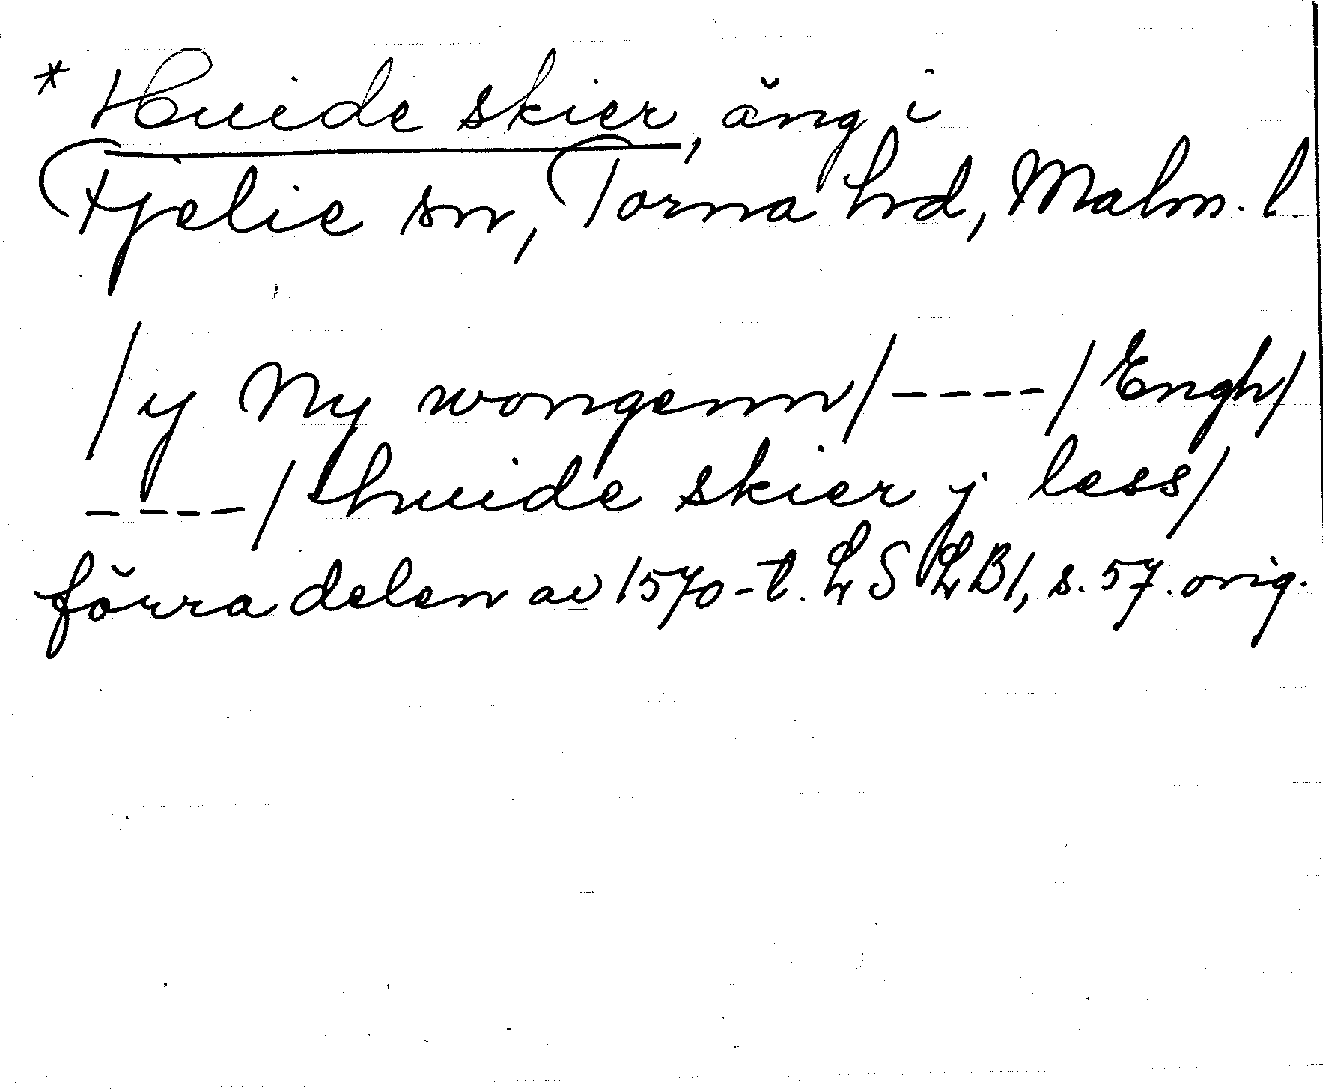 * Huide skier, äng i
Fjelie sn, Torna hd, Malm. l.
/y Ny wongenn/----/Engh/
----/huide skier j less/
förra delen av 1570-t. LSLB1, s. 57. orig.